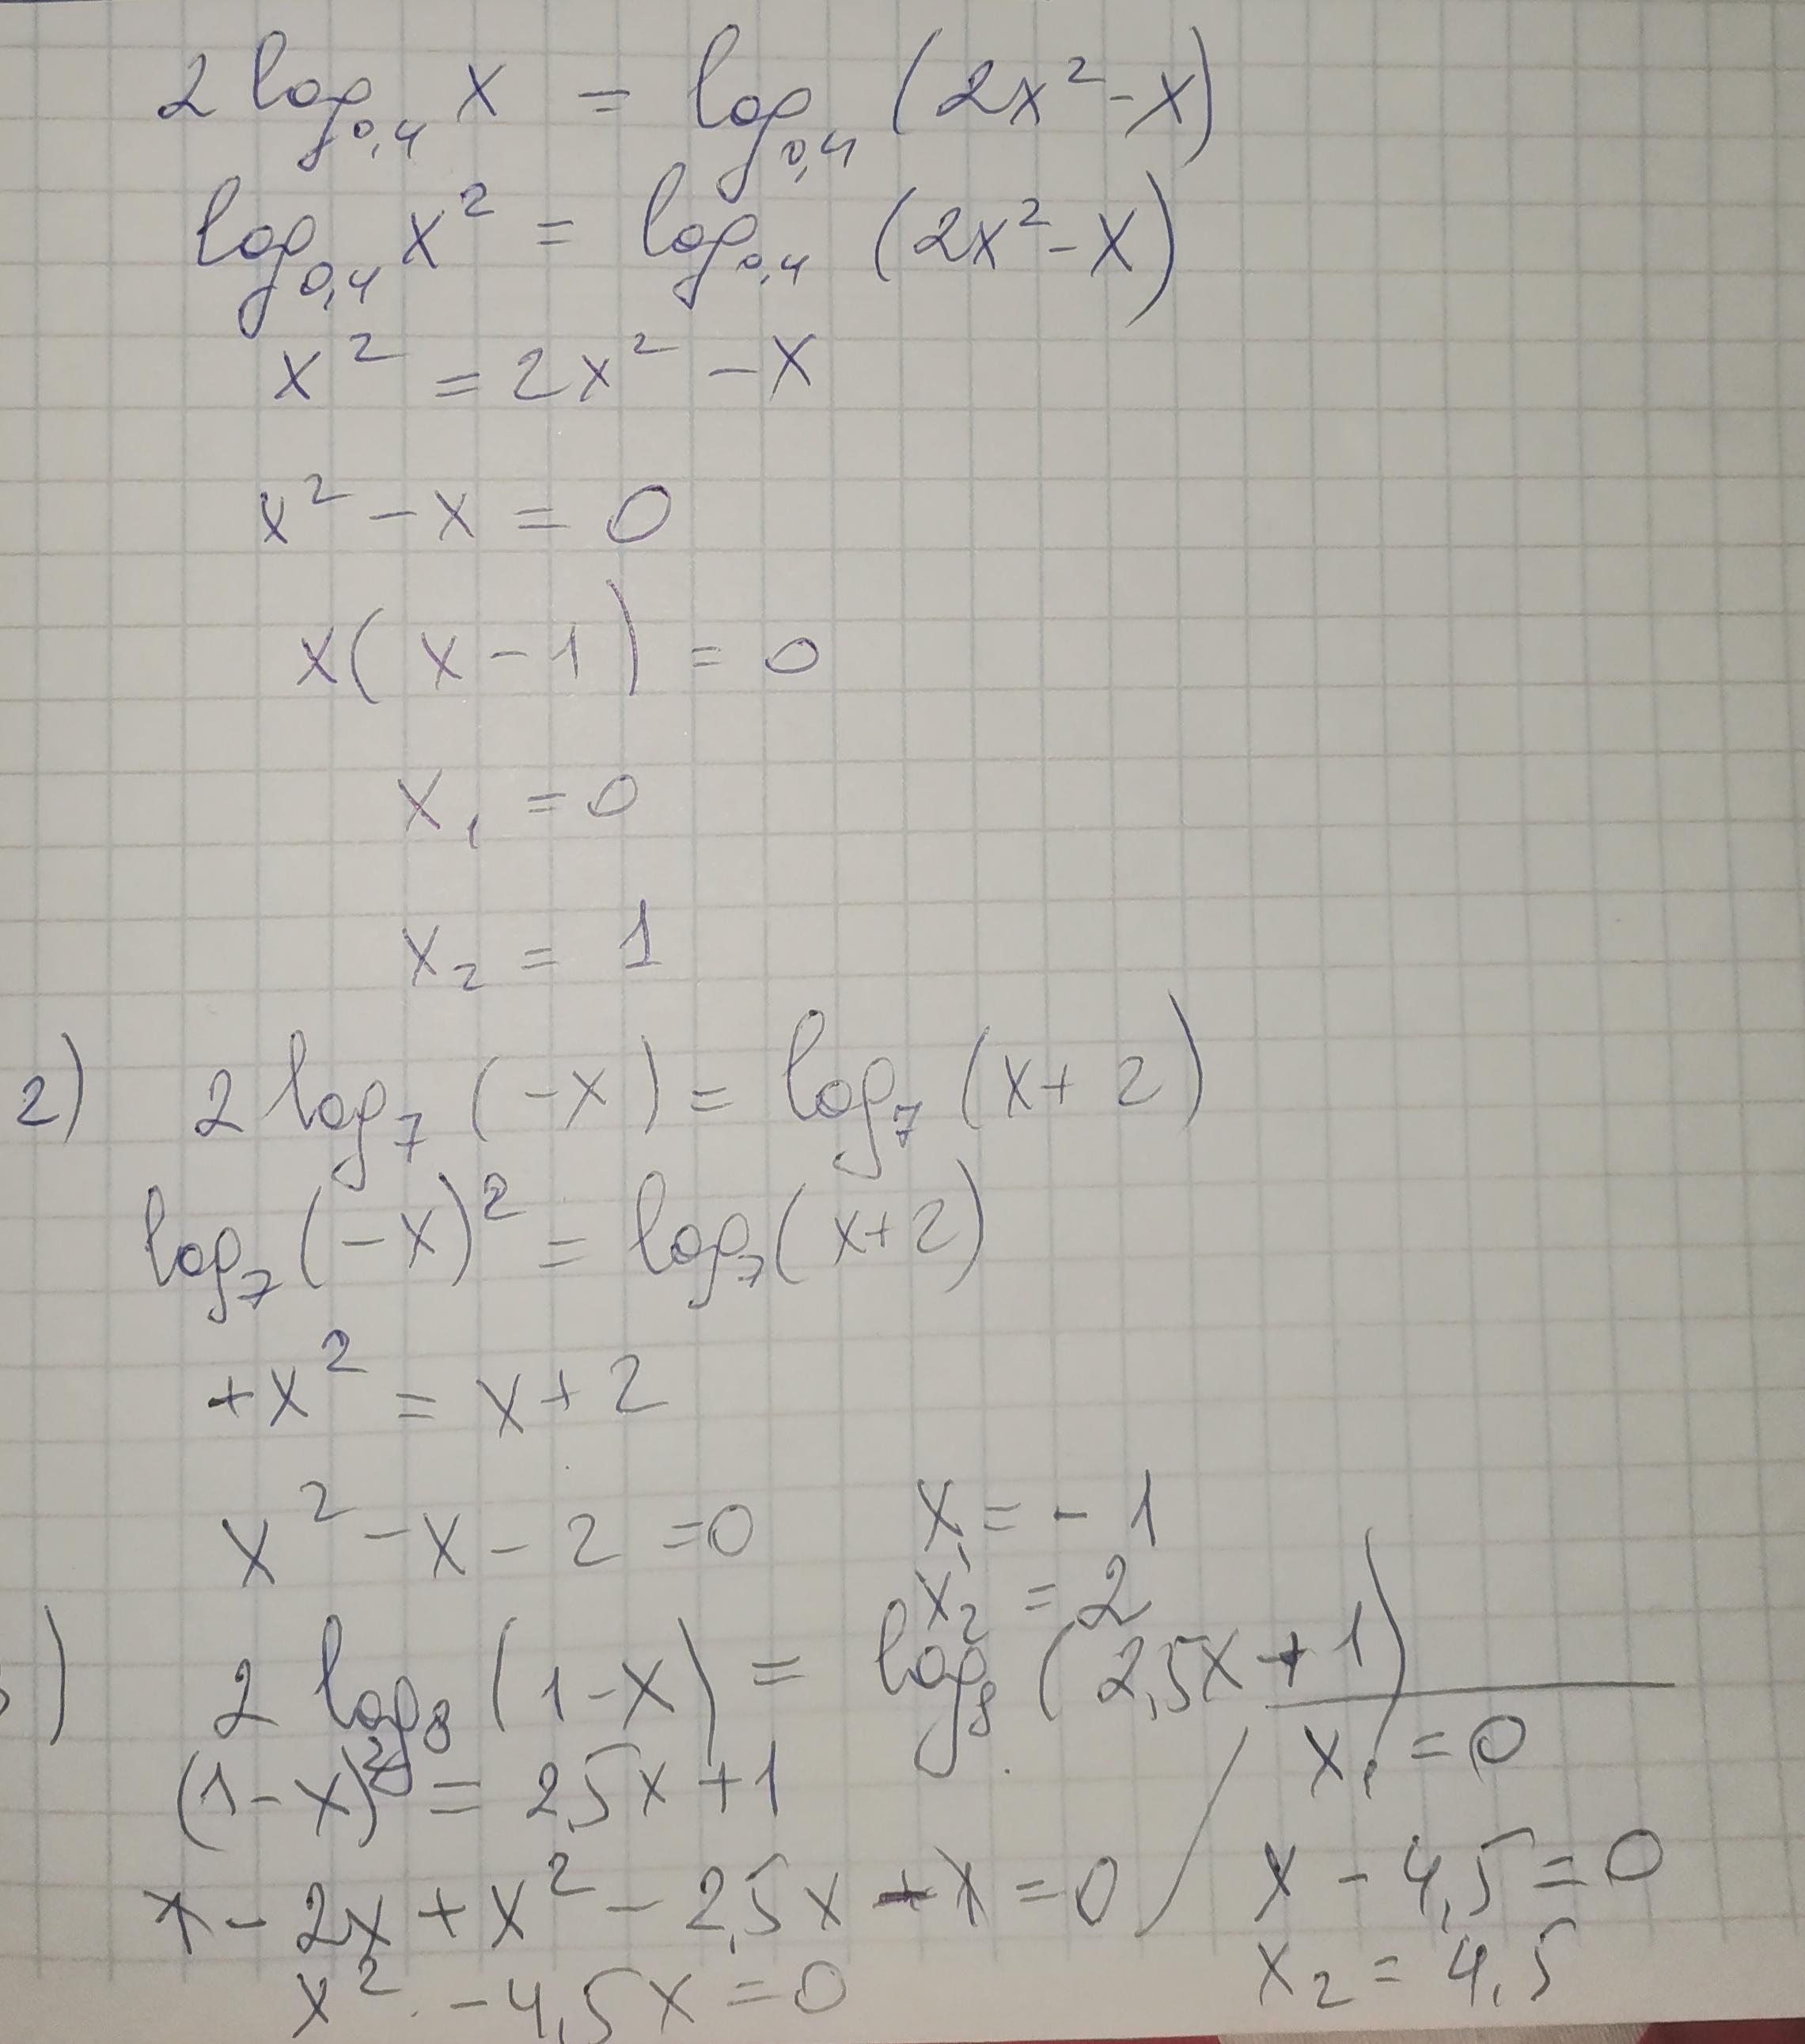 2 log₀,₄ x = log₀,₄ (2x² - x)
log₀,₄ x² = log₀,₄ (2x² - x)
x² = 2x² - x
x² - x = 0
x(x - 1) = 0
x₁ = 0
x₂ = 1
2) 2 log₇ (-x) = log₇ (x + 2)
log₇ (-x)² = log₇ (x + 2)
+x² = x + 2
x² - x - 2 = 0
x₁ = -1
x₂ = 2
) 2 log₈ (1 - x) = log₈ (2,5x + 1)
(1 - x)² = 2,5x + 1
1 - 2x + x² - 2,5x - 1 = 0
x² - 4,5x = 0
x₁ = 0
x - 4,5 = 0
x₂ = 4,5